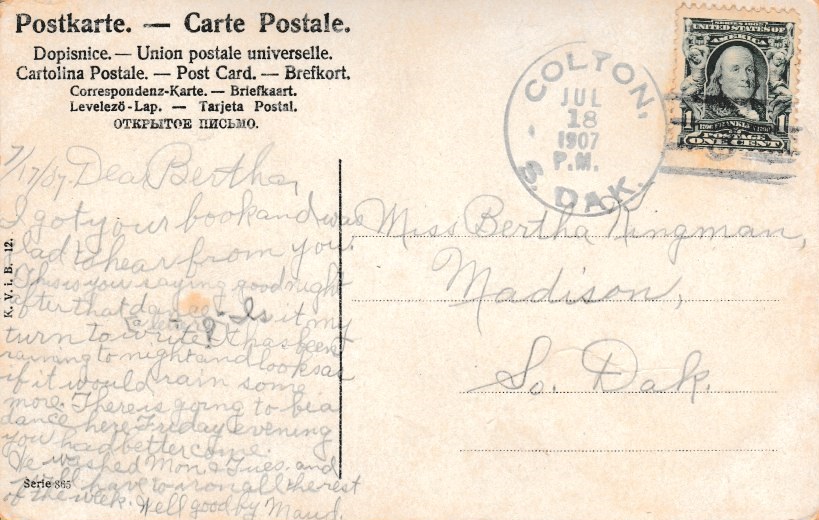 Postkarte. — Carte Postale.
Dopisnice. — Union postale universelle.
Cartolina Postale. — Post Card. — Brefkort.
Correspondenz-Karte. — Briefkaart.
Levelező-Lap. — Tarjeta Postal.
ОТКРЫТОЕ ПИСЬМО.
COLTON,
JUL
18
1907
P.M.
S. DAK.
SERIES 1902
UNITED STATES OF
AMERICA
1706 FRANKLIN 1790
1 POSTAGE 1
ONE CENT
7/17/07. Dear Bertha,
I got your book and was
glad to hear from you.
This is you saying good night
after that dance. Is it my
turn to write? It has been
raining to night and looks as
if it would rain some
more. There is going to be a
dance here Friday evening
you had better come.
We washed Mon & Tues. and
will have to iron all the rest
of the week. Well good by Maud.
K. V. i. B. 12.
Serie 865
Miss Bertha Kingman,
Madison,
So. Dak.